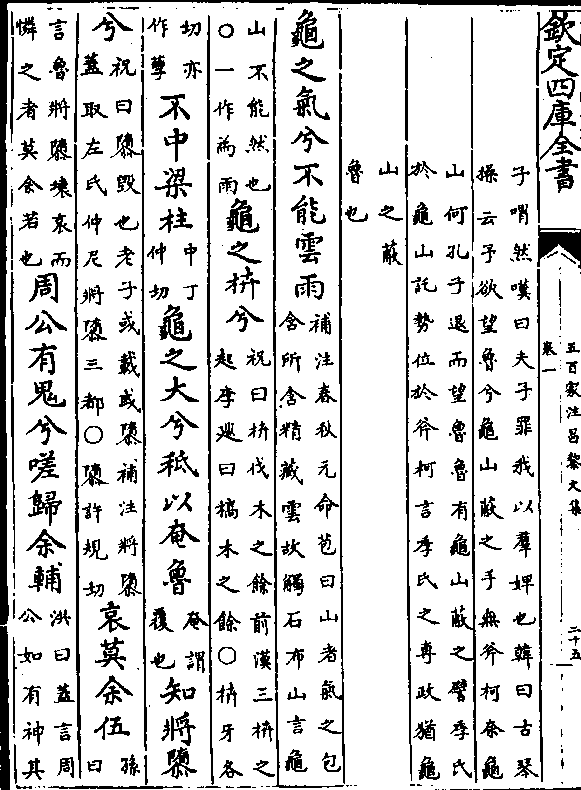 欽定四庫全書
五百家注昌黎文集
卷一
二十五
子喟然嘆曰夫子罪我以羣婢也韓曰古琴
操云予欲望魯兮龜山蔽之手無斧柯奈龜
山何孔子退而望魯魯有龜山蔽之譬季氏
於龜山託勢位於斧柯言季氏之專政猶龜
山之蔽
魯也
龜之氣兮不能雲雨補注春秋元命苞曰山者氣之包
含所含精藏雲故觸石布山言龜
山不能然也
○一作為雨龜之枿兮祝曰枿伐木之餘前漢三枿之
起李巡曰槁木之餘○枿牙各
切亦
作孽不中梁柱中丁
仲切龜之大兮秖以奄魯奄謂
覆也知將隳
兮祝曰隳毀也老子或載或隳補注將隳
蓋取左氏仲尼將隳三都○隳許規切哀莫余伍孫
曰
言魯將隳壞哀而
憐之者莫余若也周公有鬼兮嗟歸余輔洪曰蓋言周
公如有神其